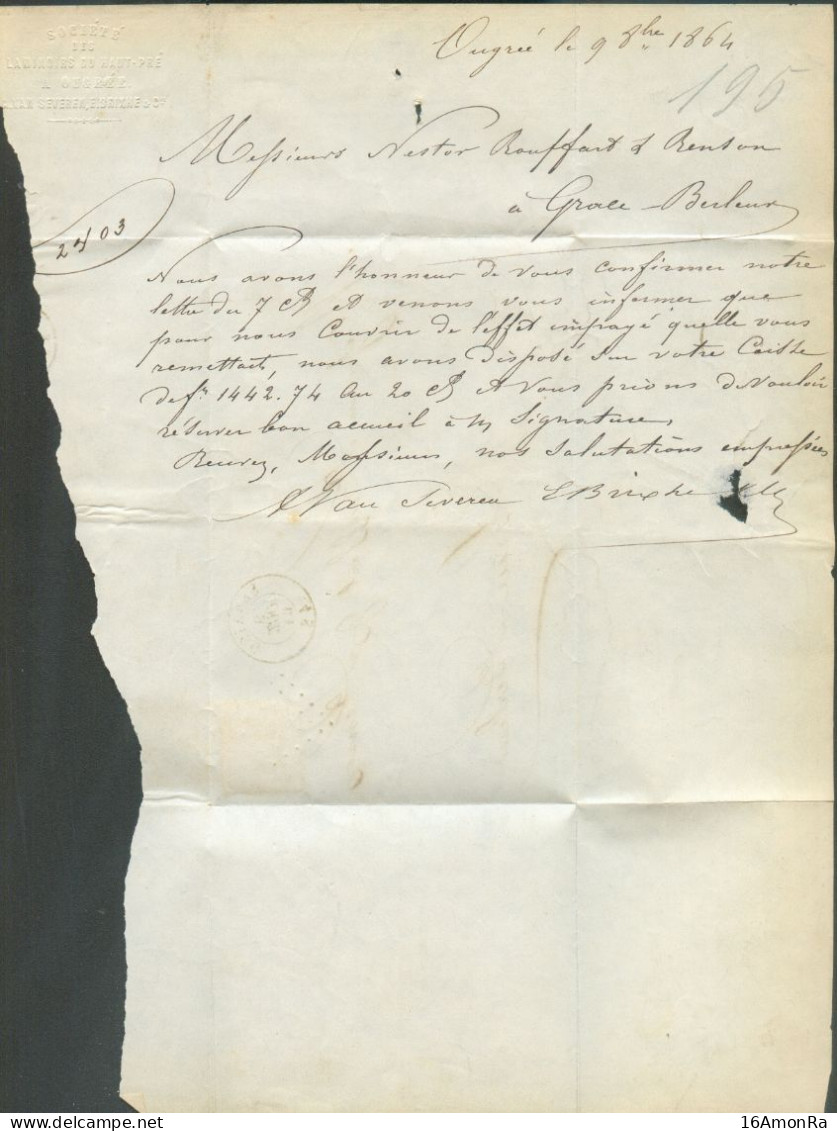 SOCIÉTÉ
DES
LAMINOIRS DU HAUT-PRÉ
A OUGRÉE
A. VAN SEVEREN, E. BRIXHE & Cie
Ougrée le 9 8bre 1864
195
Messieurs Nestor Rouffart & Renson
à Grace-Berleur
2403
Nous avons l'honneur de vous confirmer notre
lettre du 7 Ct et venons vous informer que
pour nous couvrir de l'effet impayé qu'elle vous
remettait, nous avons disposé sur votre Caisse
de fr. 1442.74 au 20 Ct et vous prions de vouloir
réserver bon accueil à n/ signature.
Recevez, Messieurs, nos salutations empressées
A Van Severen E Brixhe & Cie
16AmonRa